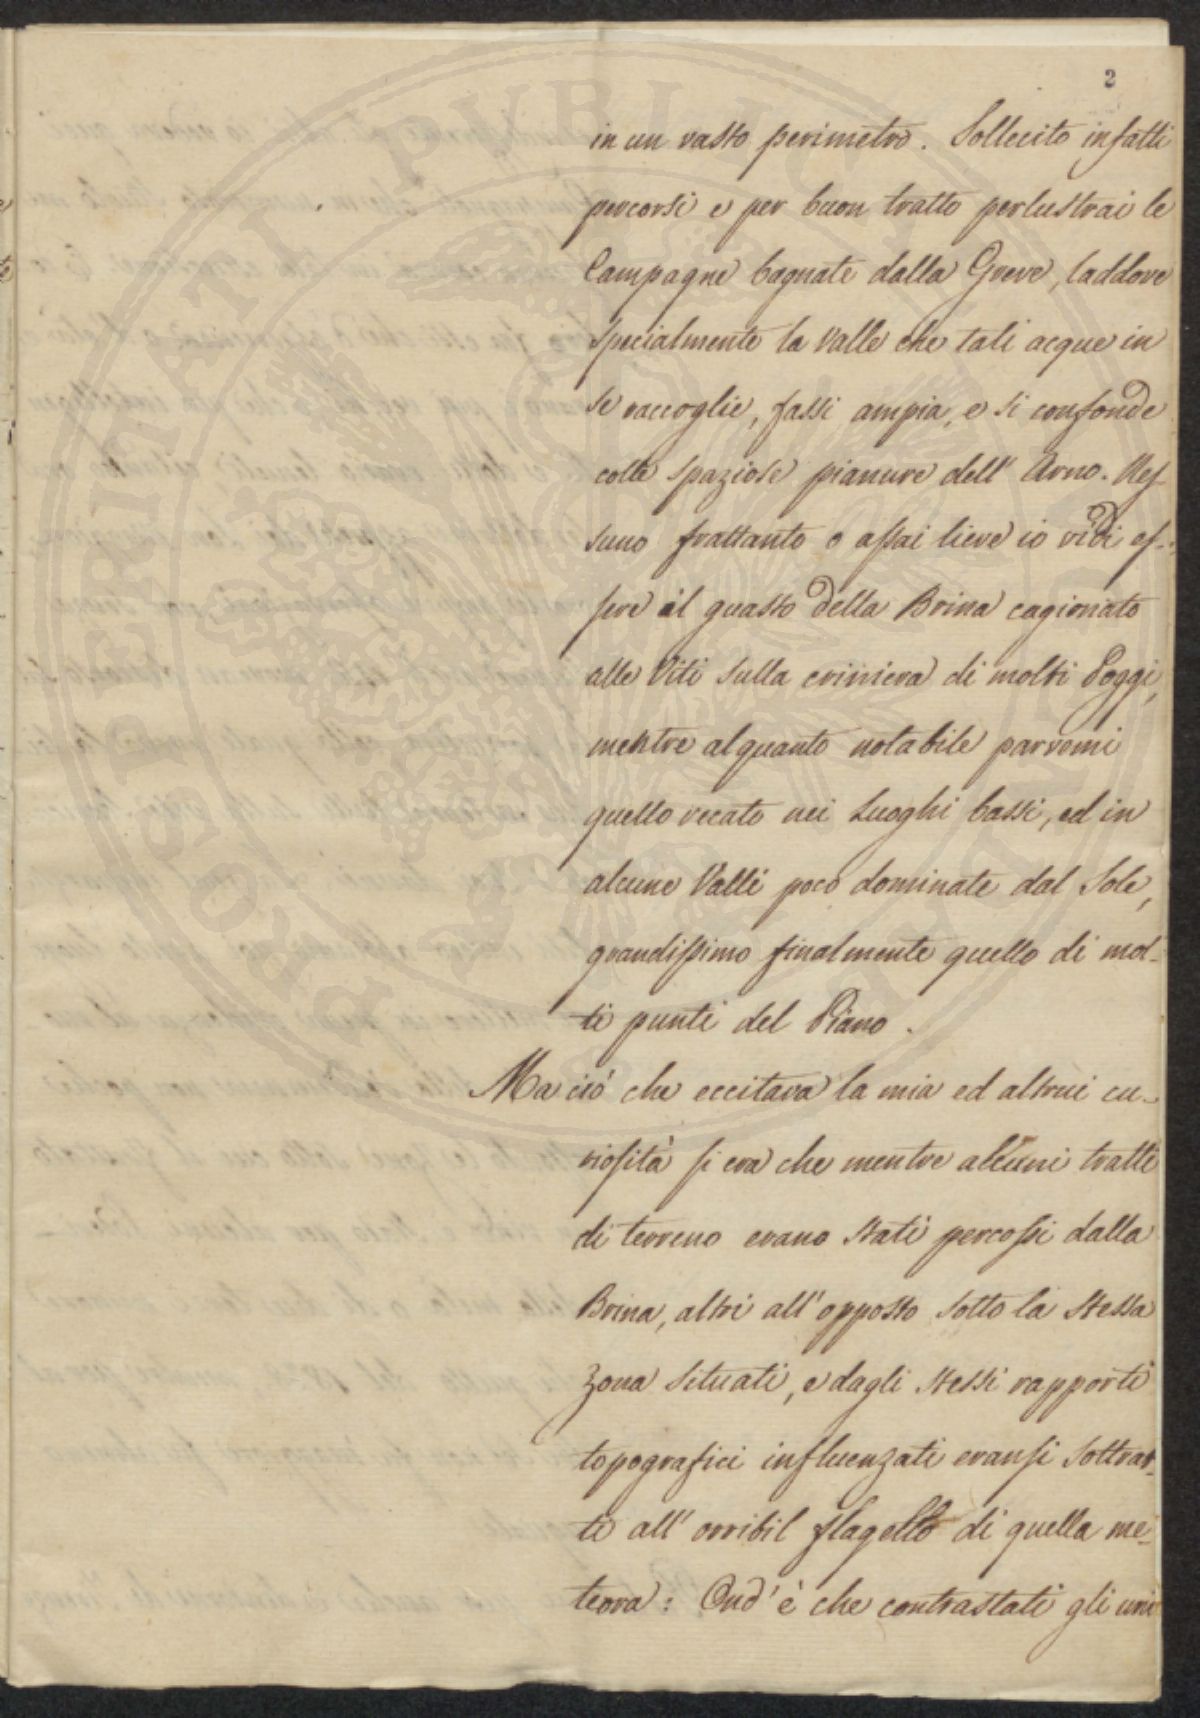 2
in un vasto perimetro. Sollecito infatti
percorsi e per buon tratto perlustrai le
Campagne bagnate dalla Greve, laddove
specialmente la Valle che tali acque in
se raccoglie, fassi ampia, e si confonde
colle spaziose pianure dell' Arno. Nes-
suno frattanto o assai lieve io vidi es-
sere il guasto della Brina cagionato
alle Viti sulla criniera di molti Poggi,
mentre alquanto notabile parvemi
quello recato nei Luoghi bassi, ed in
alcune Valli poco dominate dal Sole,
grandissimo finalmente quello di mol-
ti punti del Piano.
Ma ciò che eccitava la mia ed altrui cu-
riosità si era che mentre alcuni tratti
di terreno erano stati percossi dalla
Brina, altri all' opposto sotto la stessa
Zona situati, e dagli stessi rapporti
topografici influenzati eransi sottrat-
ti all' orribil flagello di quella me-
teora: Ond' è che contrastati gli uni
PROSPERITATI PUBLICAE